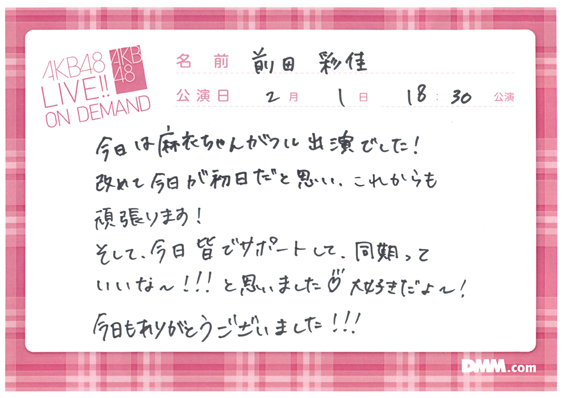 AKB48
LIVE!!
ON DEMAND
AKB
48
名前 前田 彩佳
公演日 2月 1日 18:30 公演
今日は麻衣ちゃんがフル出演でした!
改めて今日が初日だと思い、これからも
頑張ります!
そして、今日皆でサポートして、同期って
いいな〜!!!と思いました♡大好きだよ〜!
今日もありがとうございました!!!
DMM.com